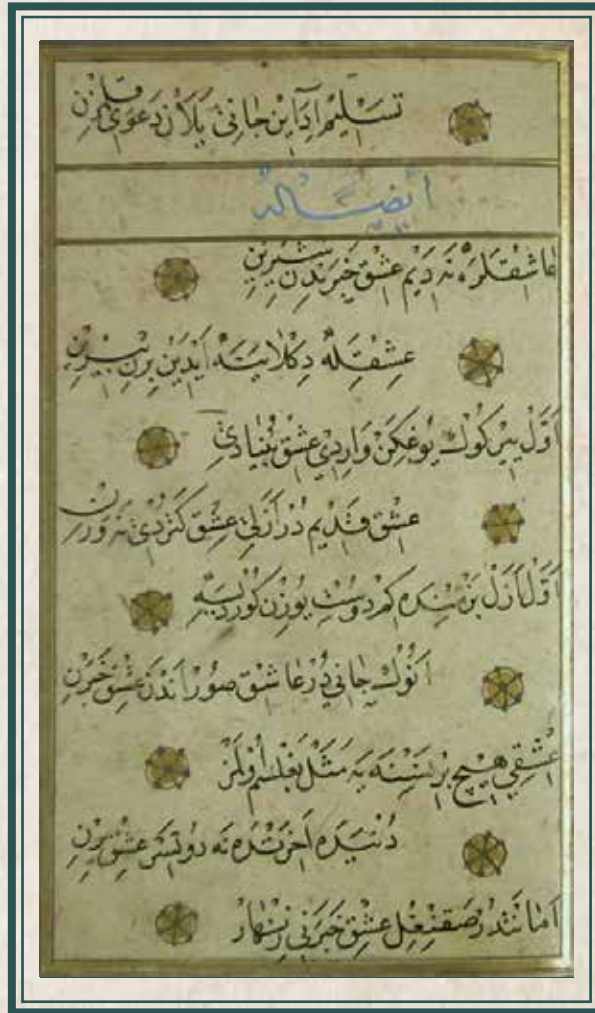 تسليم ادابن جاني يلان دعوى قلرن
ايضاً له
عاشقلره نه ديم عشق خبرندن شيرين
عشقله دكلايىته ايدين برن بيرين
اول يير كوك يوغكن وارىدي عشق بنيادي
عشق قديم در ازلي عشق كتردي نه ورين
اول ازل بزمنده كم دوست يوزن كورديسه
انوك جاني در عاشق صور اندن عشق خبرن
عشقي هيچ بر نسنه يه مثل بغلسم اولمز
دنيده اخرتده نه دوتسر عشق يرن
امانتدر صقنغل عشق خبرني زنهار